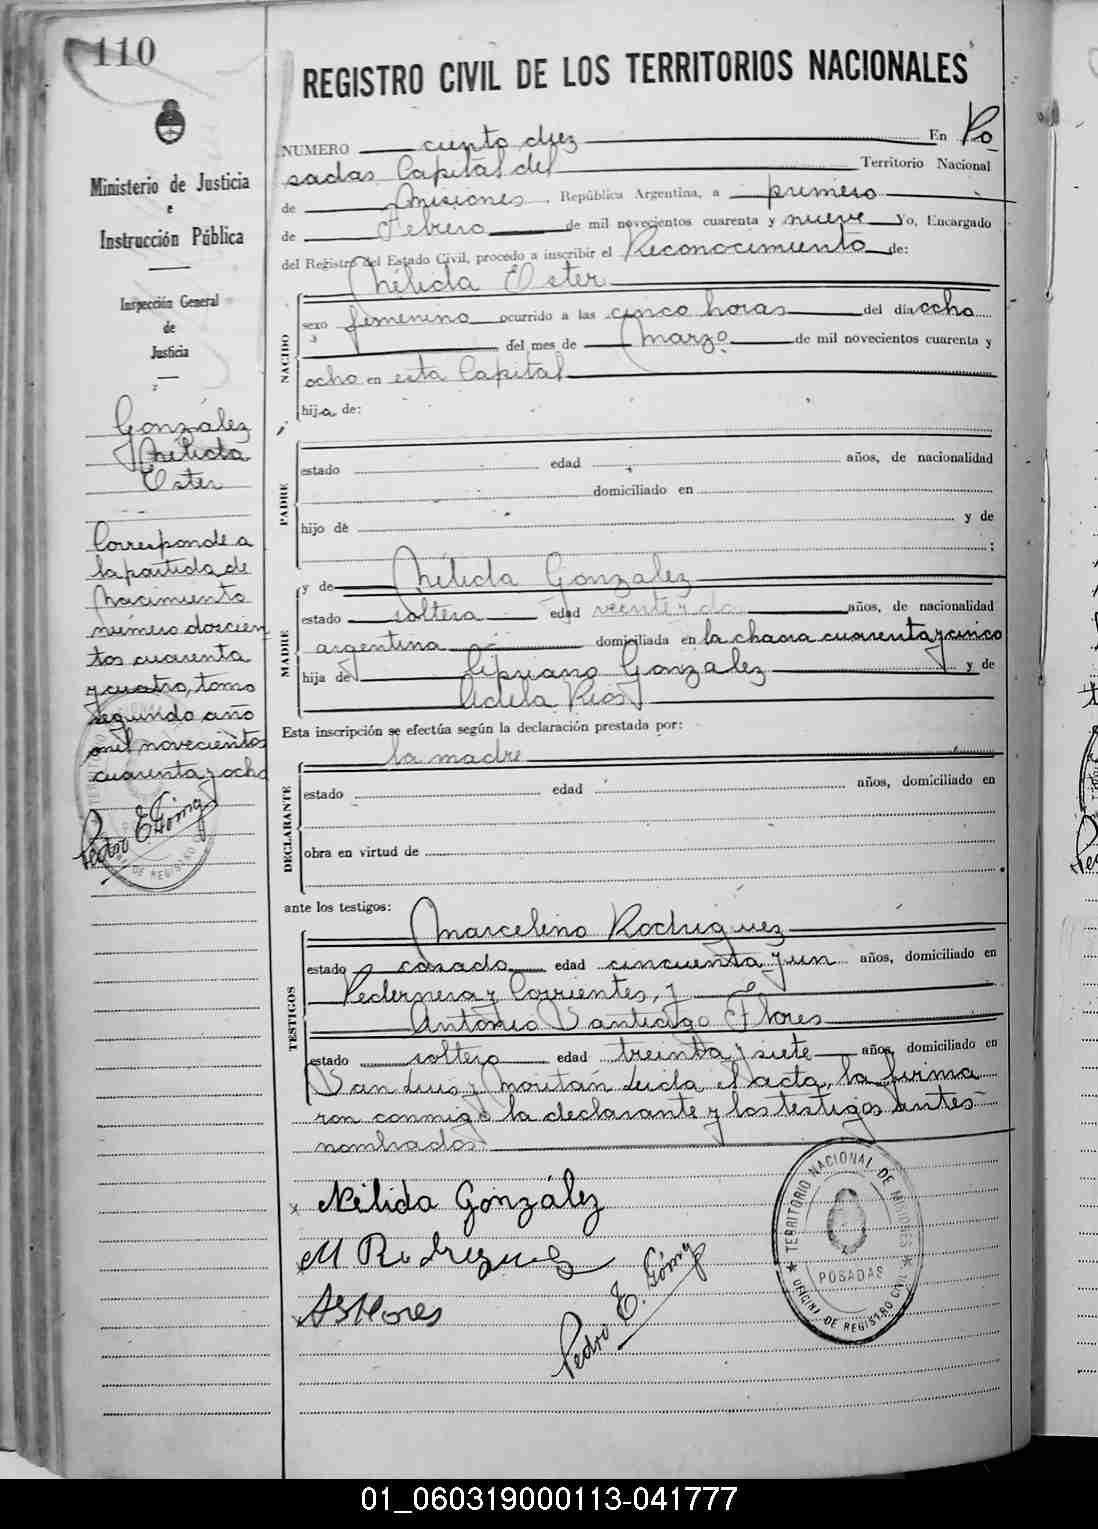 110
Ministerio de Justicia
e
Instrucción Pública
Inspección General
de
Justicia
González
Nélida
Ester
Corresponde a
la partida de
Nacimiento
número doscien
tos cuarenta
y cuatro, tomo
segundo año
mil novecientos
cuarenta y ocho
Pedro E. Gómez
REGISTRO CIVIL DE LOS TERRITORIOS NACIONALES
NUMERO ciento diez En Po
sadas Capital del Territorio Nacional
de Misiones, República Argentina, a primero
de Febrero de mil novecientos cuarenta y nueve Yo, Encargado
del Registro del Estado Civil, procedo a inscribir el Reconocimiento de:
Nélida Ester
NACIDO
sexo femenino ocurrido a las cinco horas del día ocho
del mes de Marzo de mil novecientos cuarenta y
ocho en esta Capital
hija de:
PADRE
estado edad años, de nacionalidad
domiciliado en
hijo de y de
;
y de Nélida González
MADRE
estado soltera edad veintidos años, de nacionalidad
argentina domiciliada en la chacra cuarenta y cinco
hija de Cipriano González y de
Adela Rios
Esta inscripción se efectúa según la declaración prestada por:
la madre
DECLARANTE
estado edad años, domiciliado en
obra en virtud de
ante los testigos:
Marcelino Rodriguez
TESTIGOS
estado casado edad cincuenta y un años, domiciliado en
Pedernera y Corrientes, y
Antonio Santiago Flores
estado soltero edad treinta y siete años, domiciliado en
San Luis y Leida el acta, la firma
ron conmigo la declarante y los testigos antes
nombrados.
x Nélida González
x M Rodriguez
x ASFlores
Pedro E. Gómez
★ TERRITORIO NACIONAL DE MISIONES ★
POSADAS
OFICINA DE REGISTRO CIVIL
01_060319000113-041777